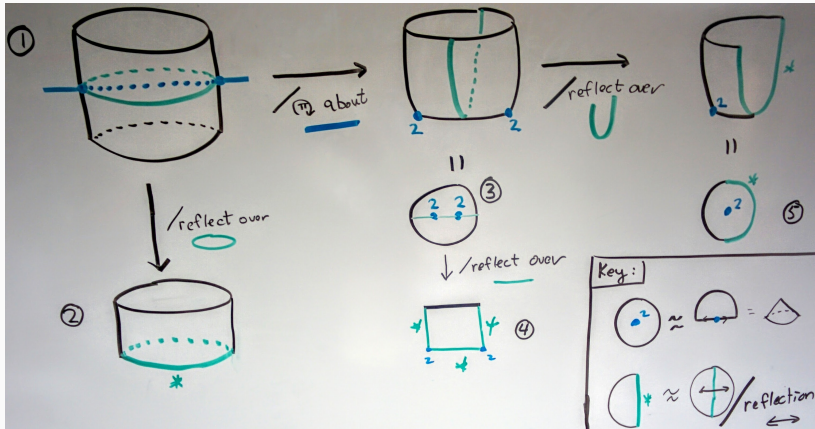 ①
/ⓜ about
/reflect over
2 2
/reflect over
*
2
②
*
=
③
2 2
/reflect over
* *
④
2 * 2
=
*
2
⑤
Key:
2 ≈ =
* ≈ /reflection